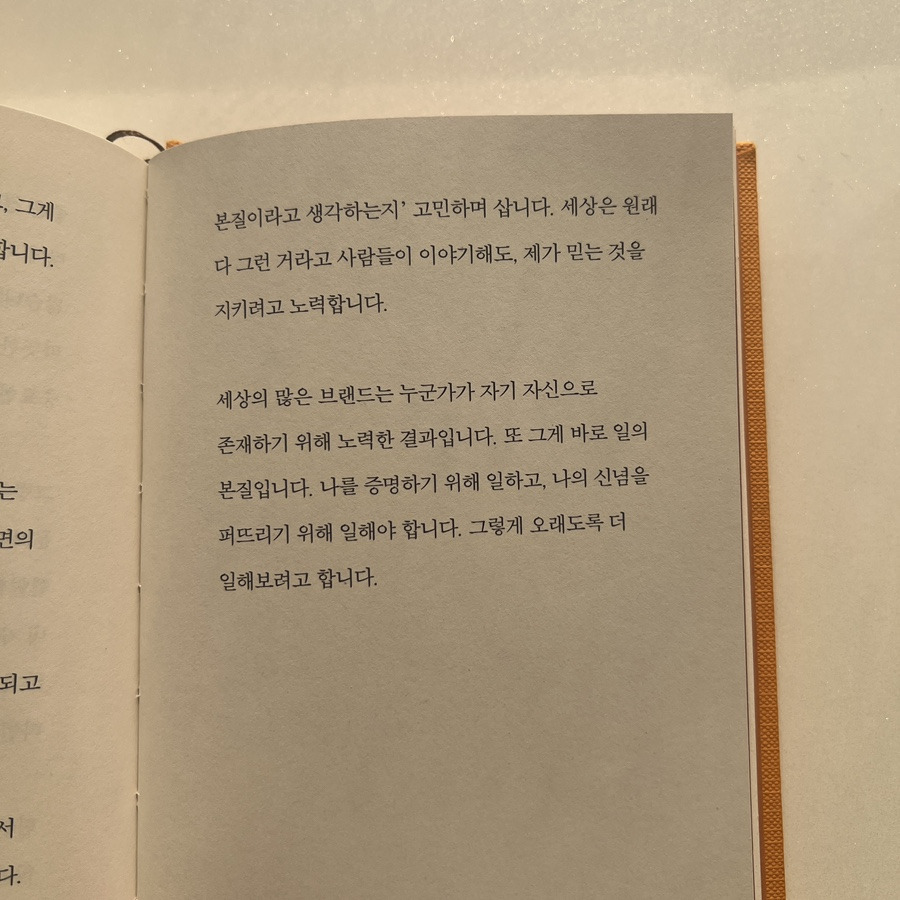 그게
합니다.
는
면의
되고
서
다.
본질이라고 생각하는지’ 고민하며 삽니다. 세상은 원래
다 그런 거라고 사람들이 이야기해도, 제가 믿는 것을
지키려고 노력합니다.
세상의 많은 브랜드는 누군가가 자기 자신으로
존재하기 위해 노력한 결과입니다. 또 그게 바로 일의
본질입니다. 나를 증명하기 위해 일하고, 나의 신념을
퍼뜨리기 위해 일해야 합니다. 그렇게 오래도록 더
일해보려고 합니다.